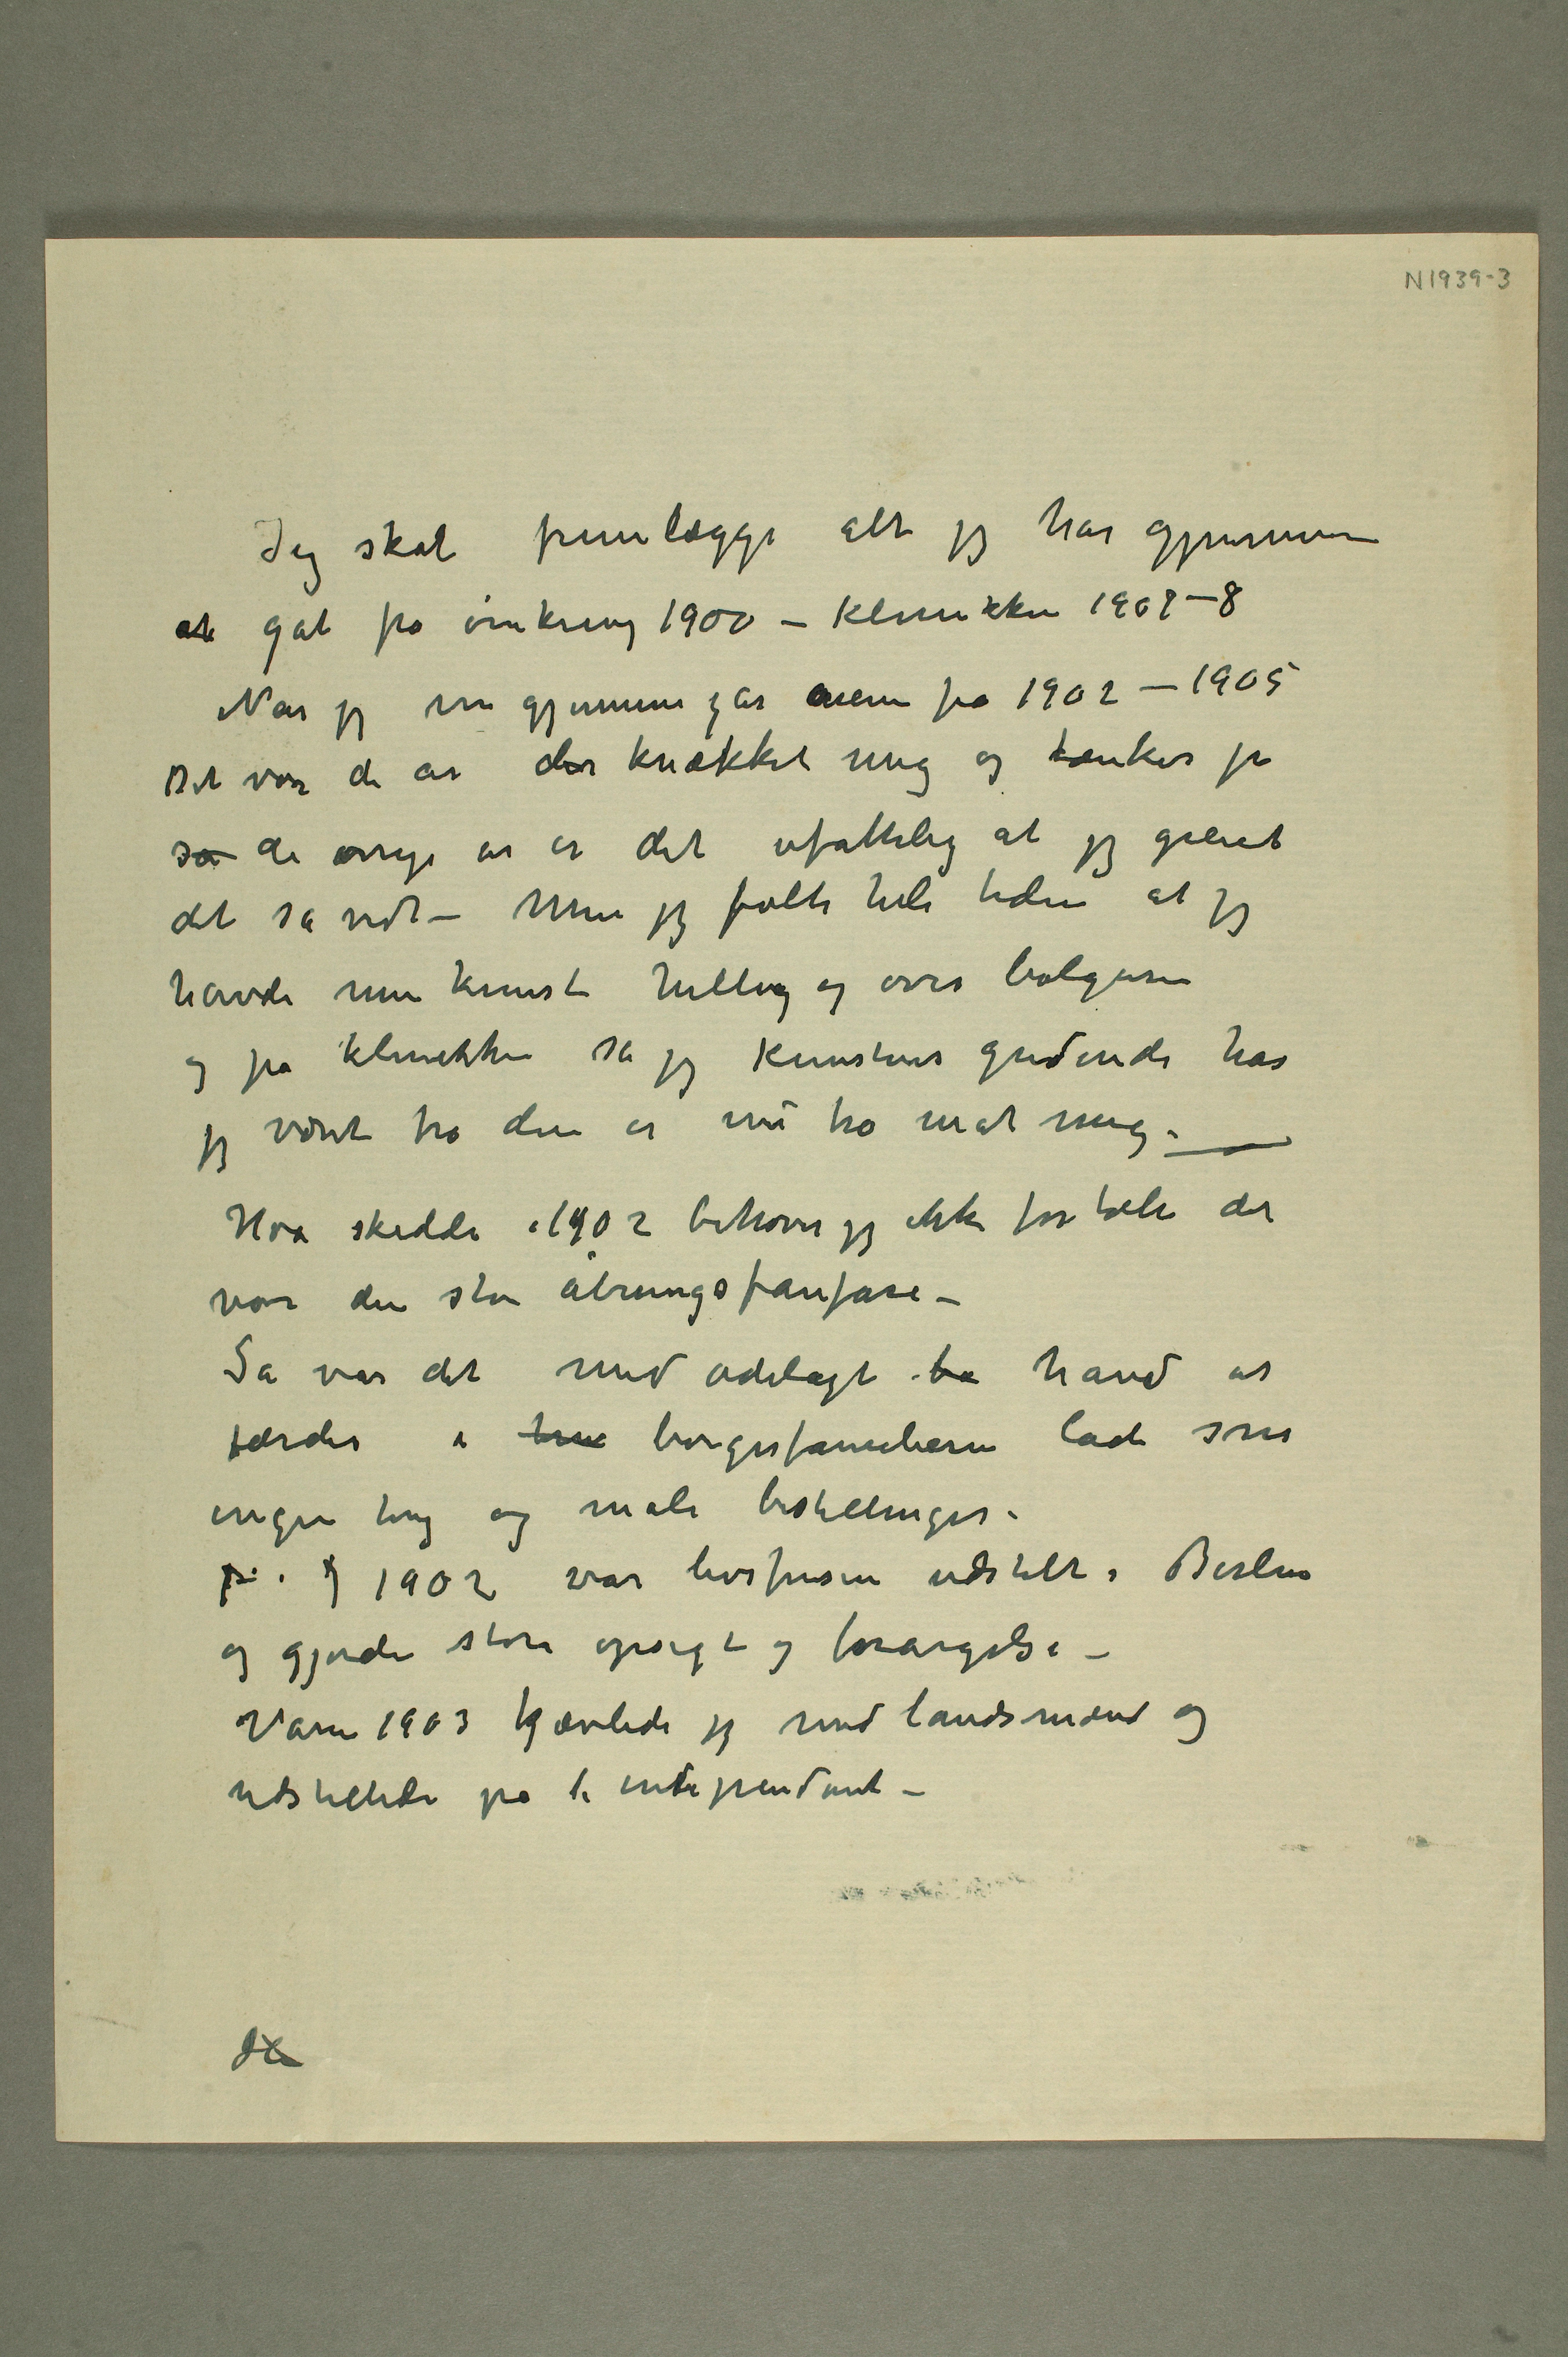 N1939-3
Jeg skal fremlægge alt jeg har gjennem
at gåt fra omkring 1900 – Klinikken 1907–8
Når jeg nu gjennemgår årene fra 1902 – 1905
Det var de år der knækket mig og tænker på
så de øvrige år er det ufattelig at jeg greiet
det så vidt – Men jeg følte hele tiden at jeg
havde min kunst hellig og over bølgerne
og på klinikken sa jeg Kunstens gudinde har
jeg vært tro den er nu tro mot mig.
Hva skedde i 1902 behøver jeg ikke fortælle det
var den store åbningsfanfare –
Så var det med ødelagt hånd at
færdes i borgerfamilierne lade som
ingen ting og male bestillinger.
I 1902 var livsfrisen udstilt i Berlin
og gjorde stor opsigt og forargelse –
Våren 1903 kjævlede jeg med landsmænd og
udstillede på de independant –